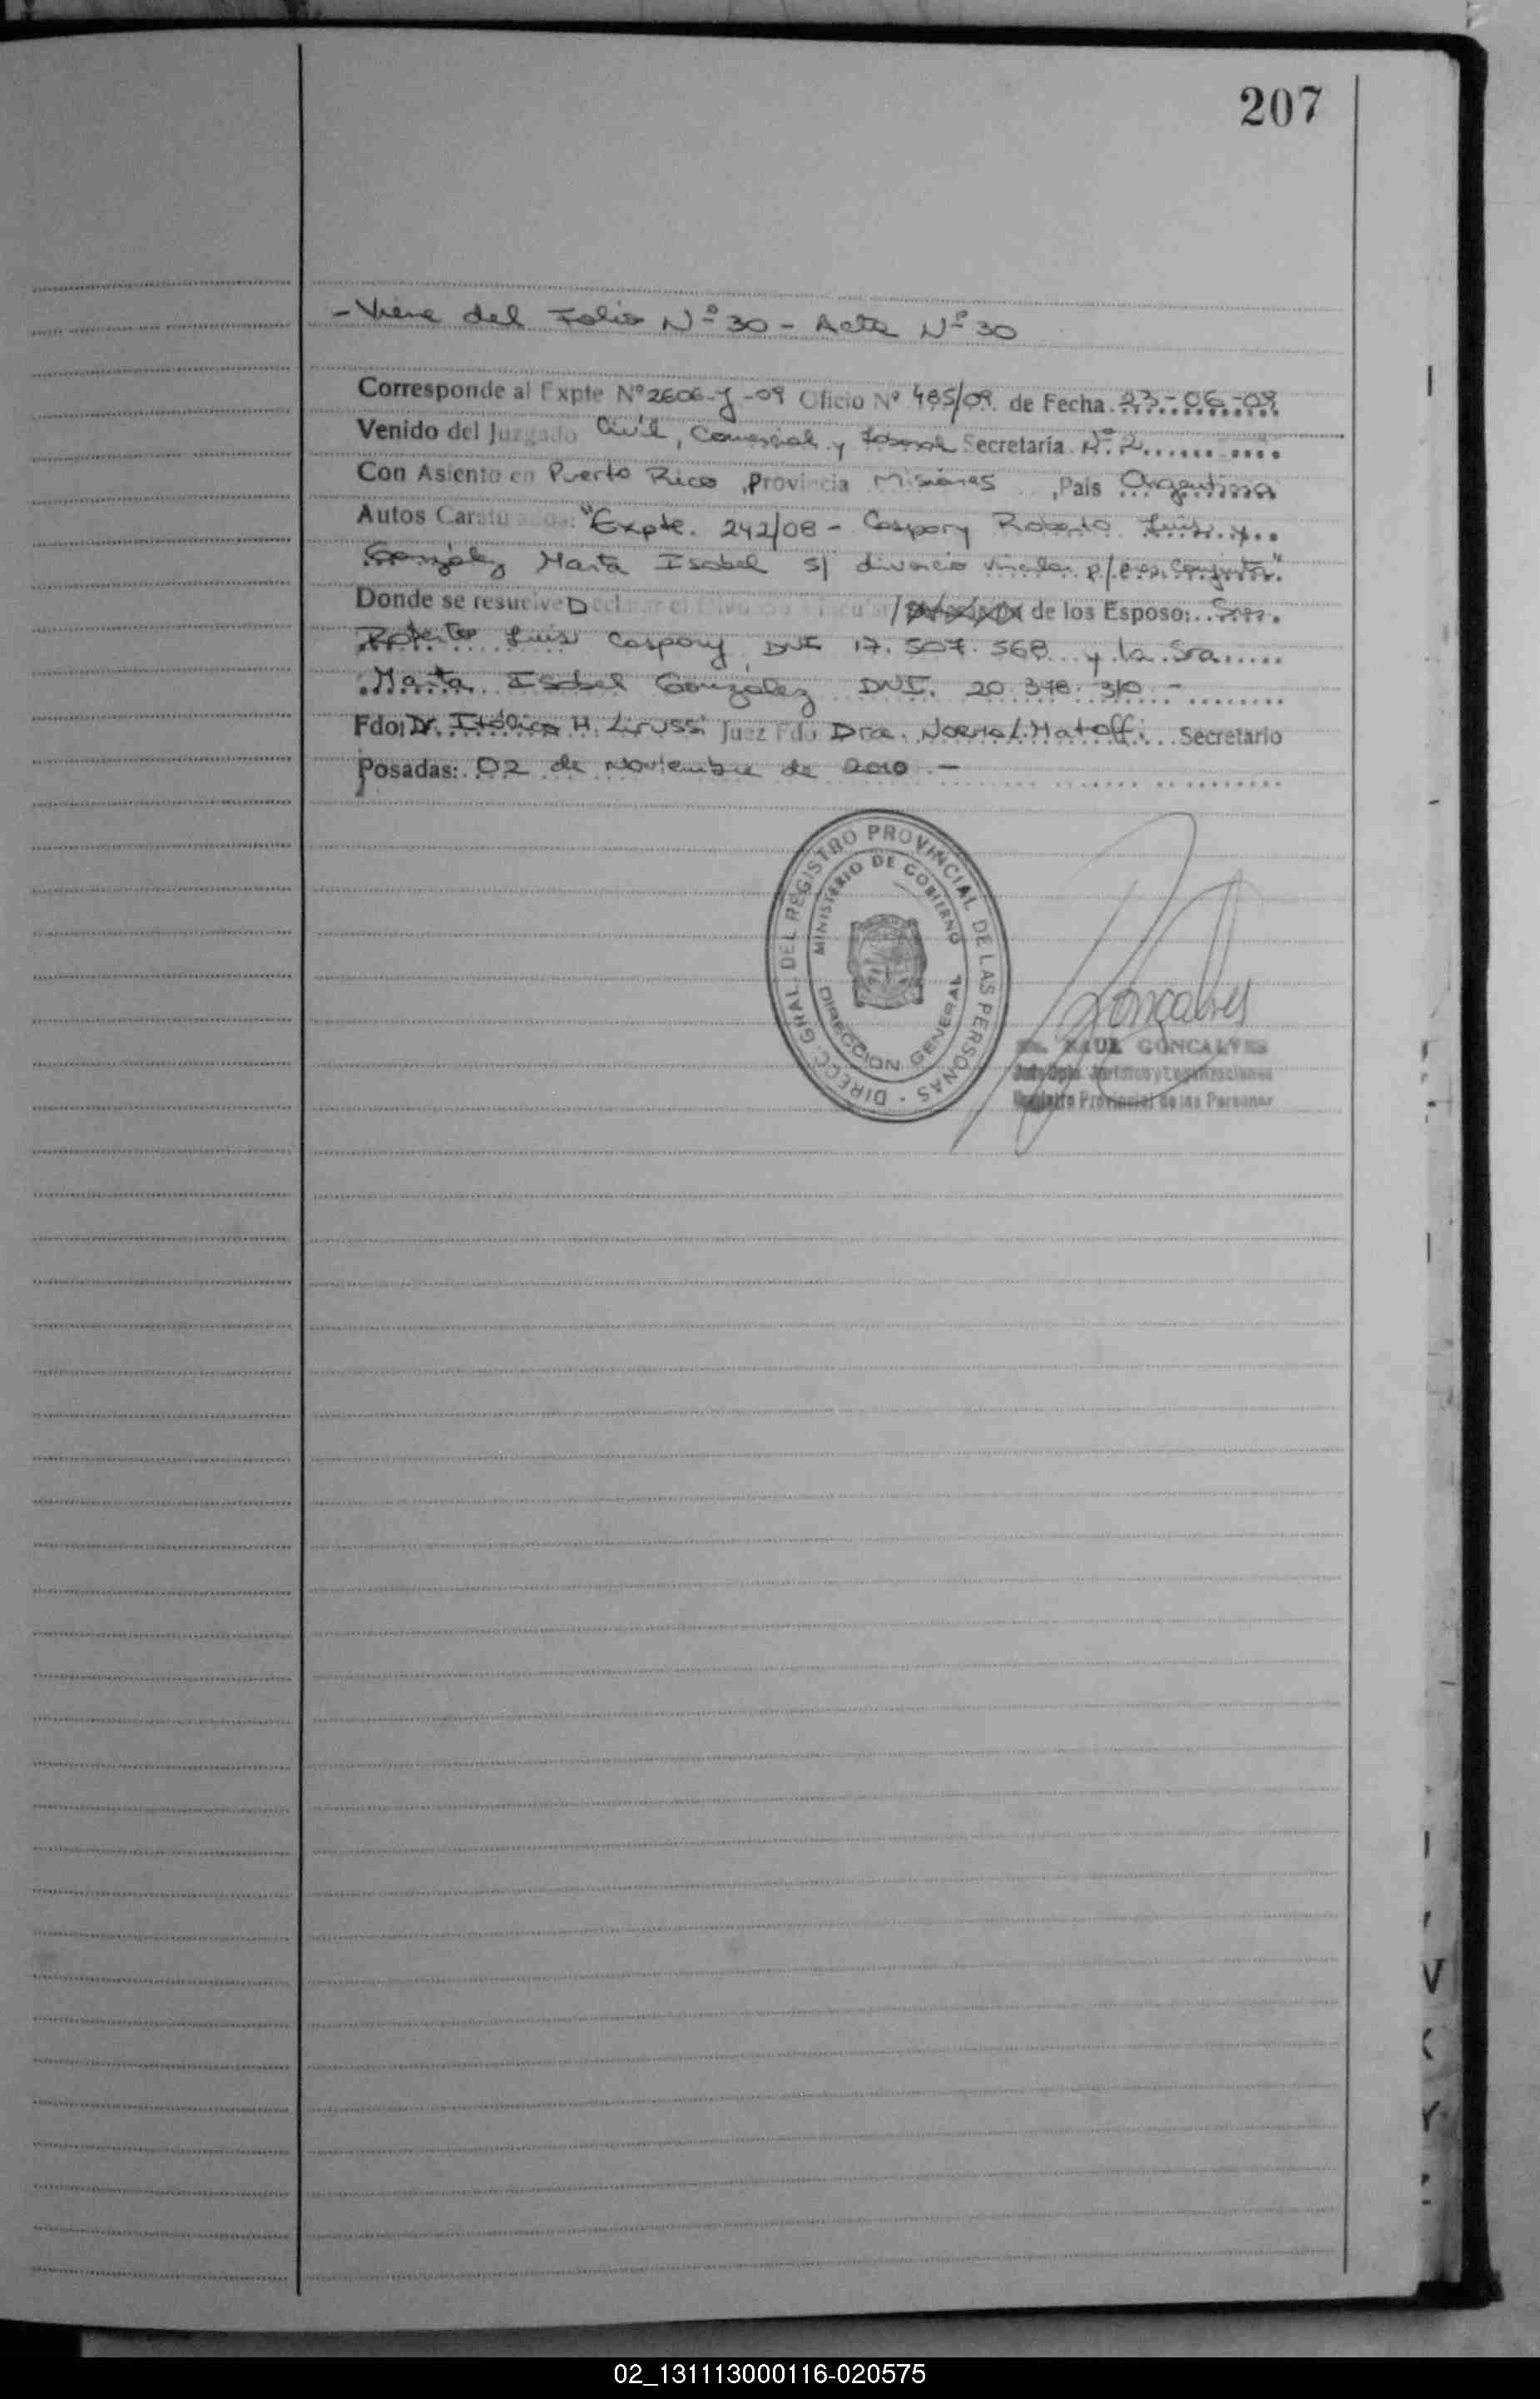 207
- Viene del Folio Nº 30 - Acta Nº 30
Corresponde al Expte Nº 2606-J-09 Oficio Nº 485/09. de Fecha 23-06-09
Venido del Juzgado Civil, Comercial y Laboral Secretaría Nº 2
Con Asiento en Puerto Rico ,Provincia Misiones ,Pais Argentina
Autos Caratulados: "Expte. 242/08 - Caspary Roberto Luis y
González Marta Isabel s/ divorcio vincular p/ pres. Conjunta."
Donde se resuelve Declarar el Divorcio Vincular/ de los Esposo: Sres.
Roberto Luis Caspary, DNI 17.507.568 y la Sra
Marta Isabel González DNI. 20.378.310 -
Fdo: Dr. H. Lirussi Juez Fdo Dra. Norma L. Matoffi Secretario
Posadas: 02 de Noviembre de 2010 -
DIRECC. GRAL. DEL REGISTRO PROVINCIAL DE LAS PERSONAS -
MINISTERIO DE GOBIERNO
DIRECCION GENERAL
Goncalves
RAUL GONCALVES
Jefe Dpto. Jurídico y Legalizaciones
Registro Provincial de las Personas
02_131113000116-020575